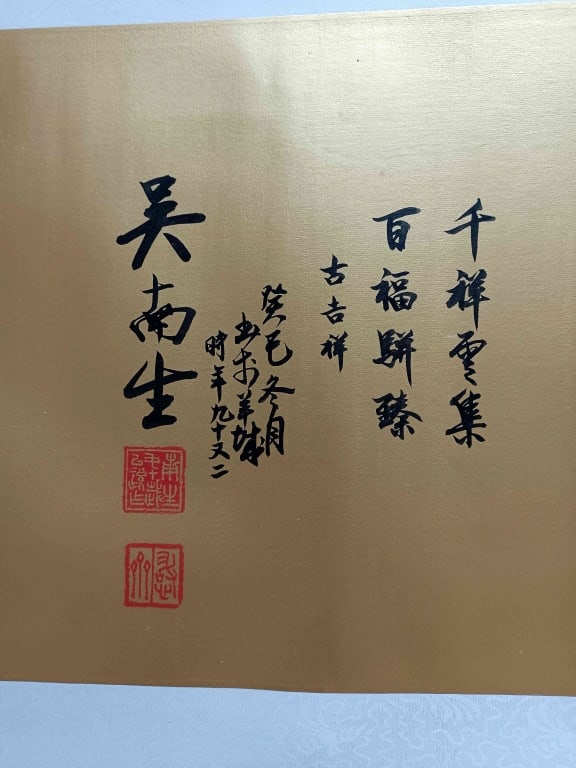 千祥雲集
百福駢臻
古吉祥
癸巳冬月
书於羊城
時年九十又二
吴南生